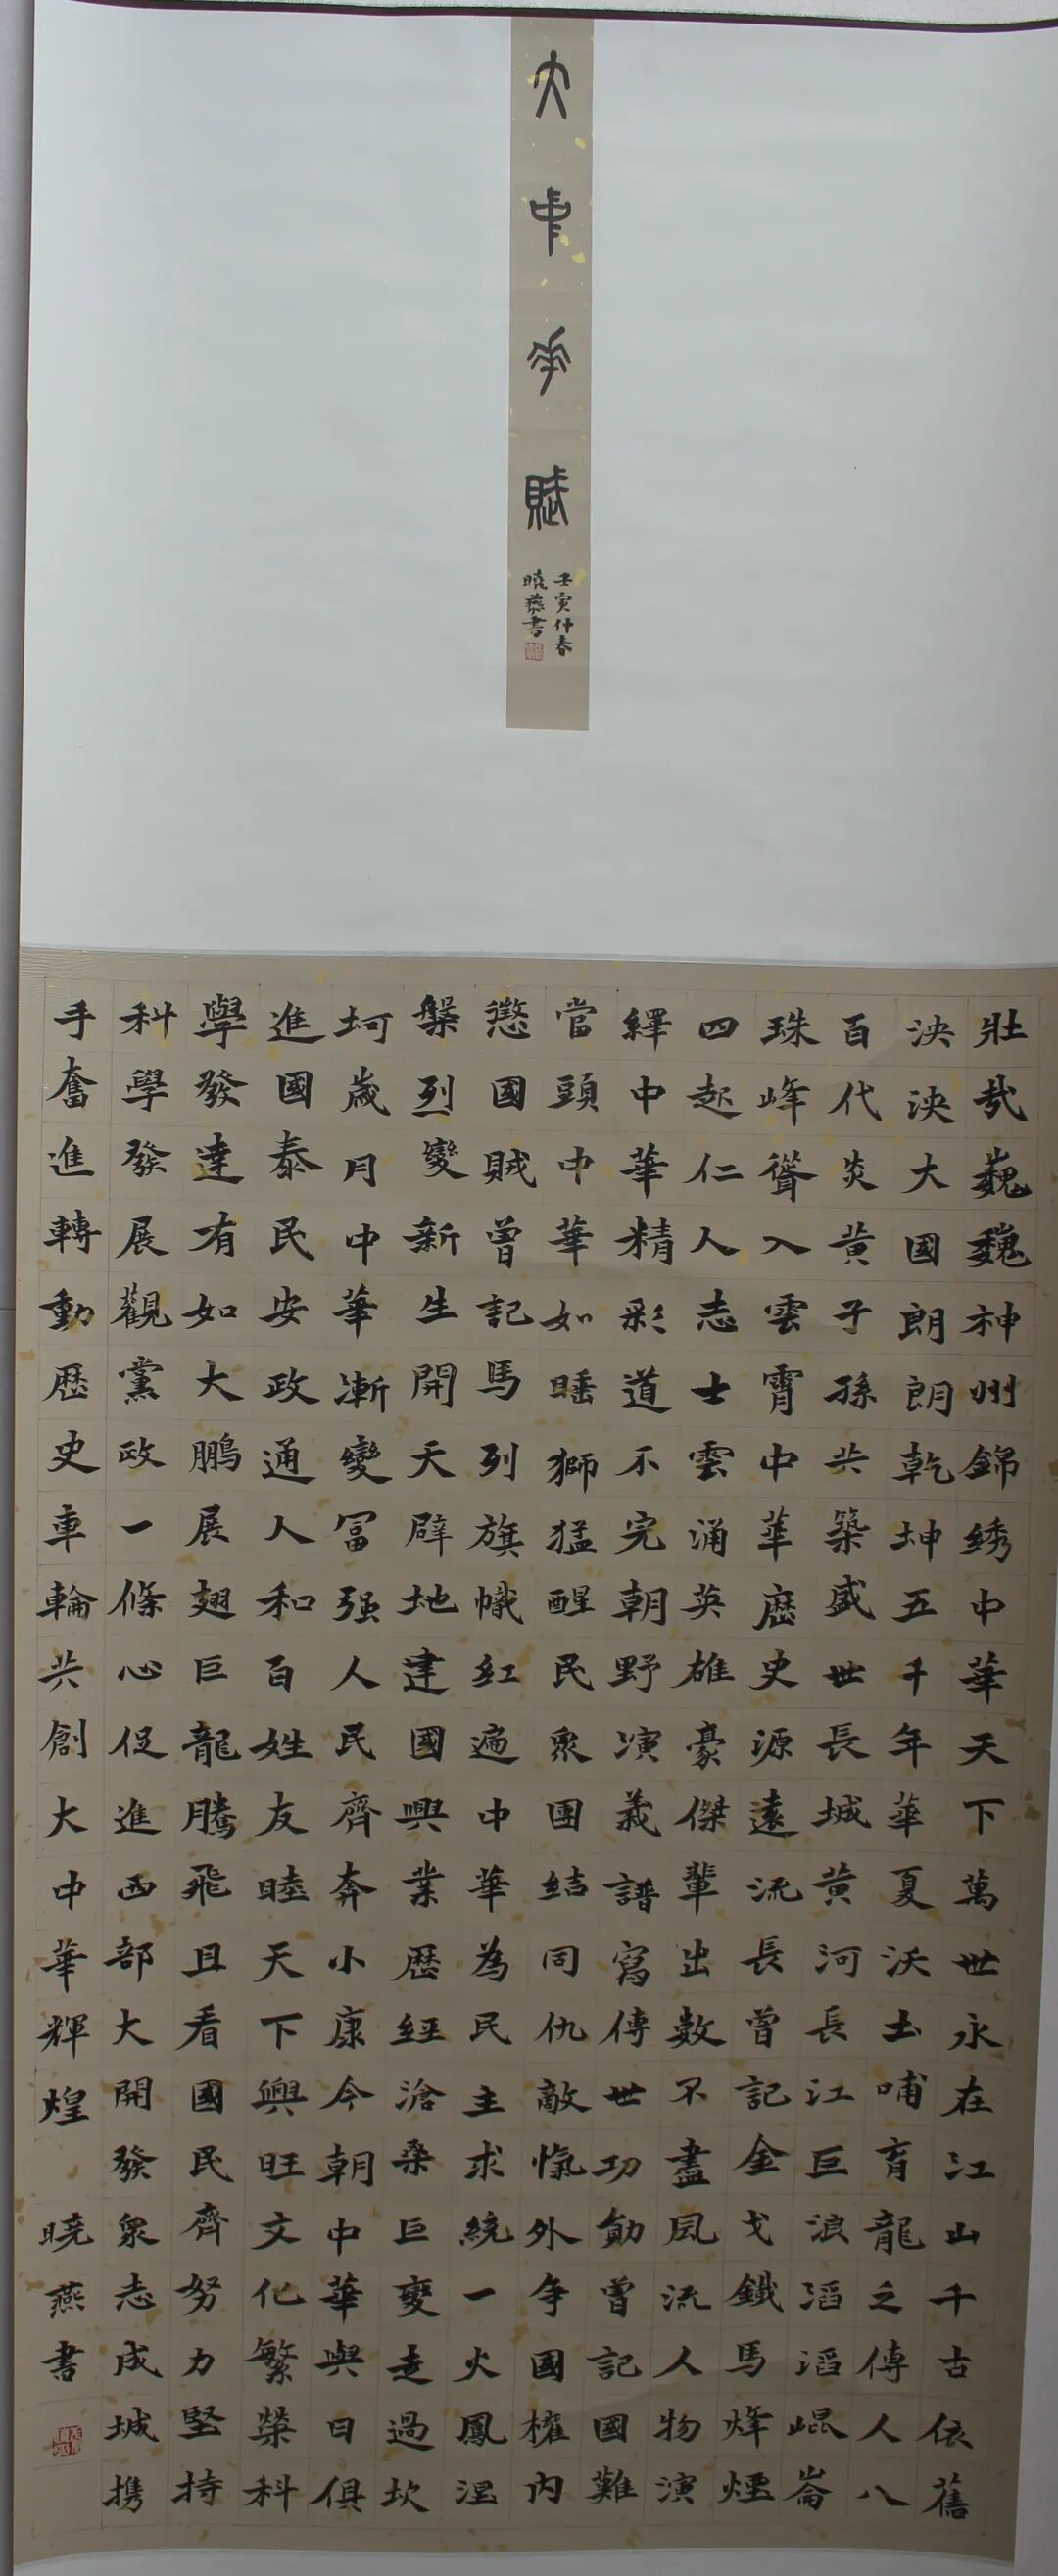 大中華賦
壬寅仲春
曉燕書
壯哉巍巍神州錦绣中華天下萬世永在江山千古依舊
泱泱大國朗朗乾坤五千年華夏沃土哺育龍之傳人八
百代炎黄子孫共築盛世長城黄河長江巨浪滔滔崐崙
珠峰聳入雲霄中華歷史源遠流長曾記金戈鐵馬烽煙
四起仁人志士雲涌英雄豪傑輩出數不盡風流人物演
繹中華精彩道不完朝野演義譜寫傳世功勛曾記國難
當頭中華如睡獅猛醒民衆團結同仇敵愾外争國權内
懲國賊曾記馬列旗幟紅遍中華為民主求統一火鳳涅
槃烈變新生開天辟地建國興業歷經滄桑巨變走過坎
坷歲月中華漸變富强人民齊奔小康今朝中華與日俱
進國泰民安政通人和百姓友睦天下興旺文化繁榮科
學發達有如大鵬展翅巨龍騰飛且看國民齊努力堅持
科學發展觀黨政一條心促進西部大開發衆志成城携
手奮進轉動歷史車輪共創大中華輝煌 曉燕書